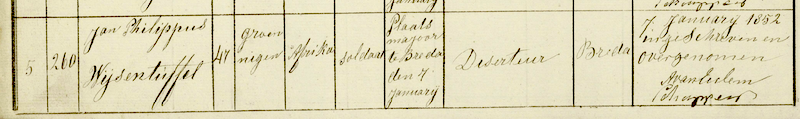 January
Schapper
5
260
Jan Philippus
Wijsentuffel
47
groe
nigen
Afrika
soldaat
Plaats
majoor
te Breda
den 7
January
Deserteur
Breda
7 January 1852
ingeschreven en
overgenomen
Schapper